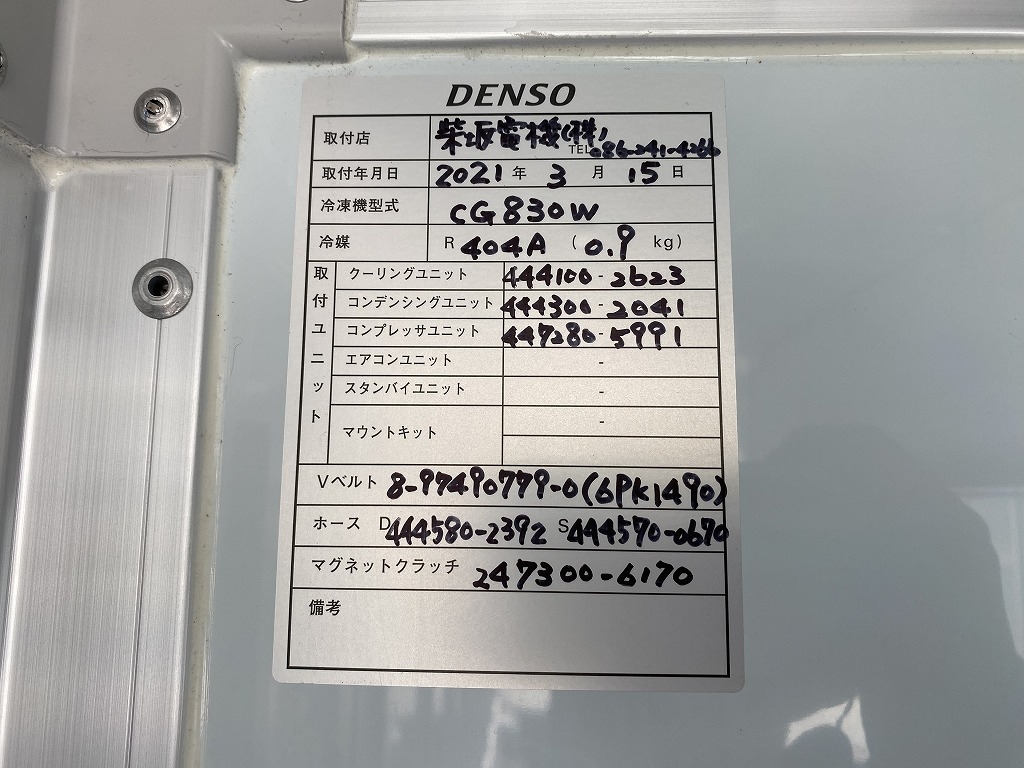 DENSO
取付店 柴坂電機(株)
TEL 086-241-4266
取付年月日 2021年 3月 15日
冷凍機型式 CG830W
冷媒 R 404A ( 0.9 kg)
取付ユニット
クーリングユニット 444100-2623
コンデンシングユニット 444300-2041
コンプレッサユニット 447280-5991
エアコンユニット -
スタンバイユニット -
マウントキット -
Vベルト 8-97490779-0(6PK1490)
ホース D 444580-2392 S 444570-0670
マグネットクラッチ 247300-6170
備考